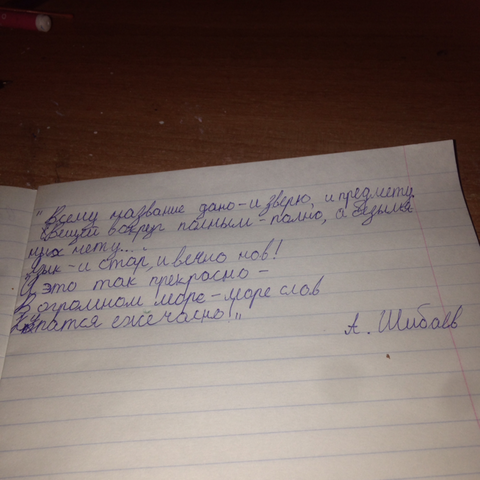 "Всему название дано-и зверю, и предмету.
Вещей вокруг полным-полно, а безымя
нных нету...
Язык-и стар, и вечно нов!
И это так прекрасно-
В огромном море-море слов
Купатся ежечасно!"
А. Шибаев